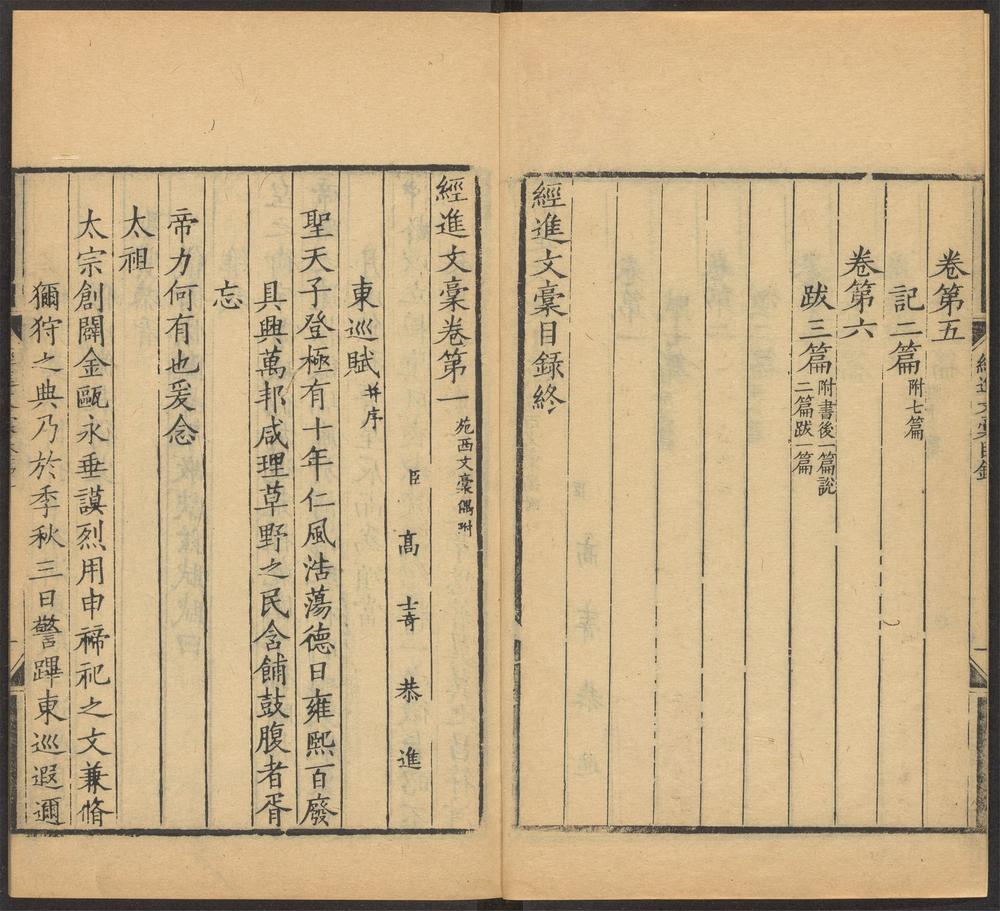 卷第五
記二篇附七篇
卷第六
跋三篇附書後一篇說二篇跋一篇
經進文稾目錄終
經進文稾卷第一 苑西文稾偶附
東巡賦并序
臣高士奇恭進
聖天子登極有十年仁風浩蕩德日雍熙百廢
具興萬邦咸理草野之民含餔鼓腹者胥
忘
帝力何有也爰念
太祖
太宗創闢金甌永垂謨烈用申禘祀之文兼脩
獮狩之典乃於季秋三日警蹕東巡遐邇
經進文稾目錄